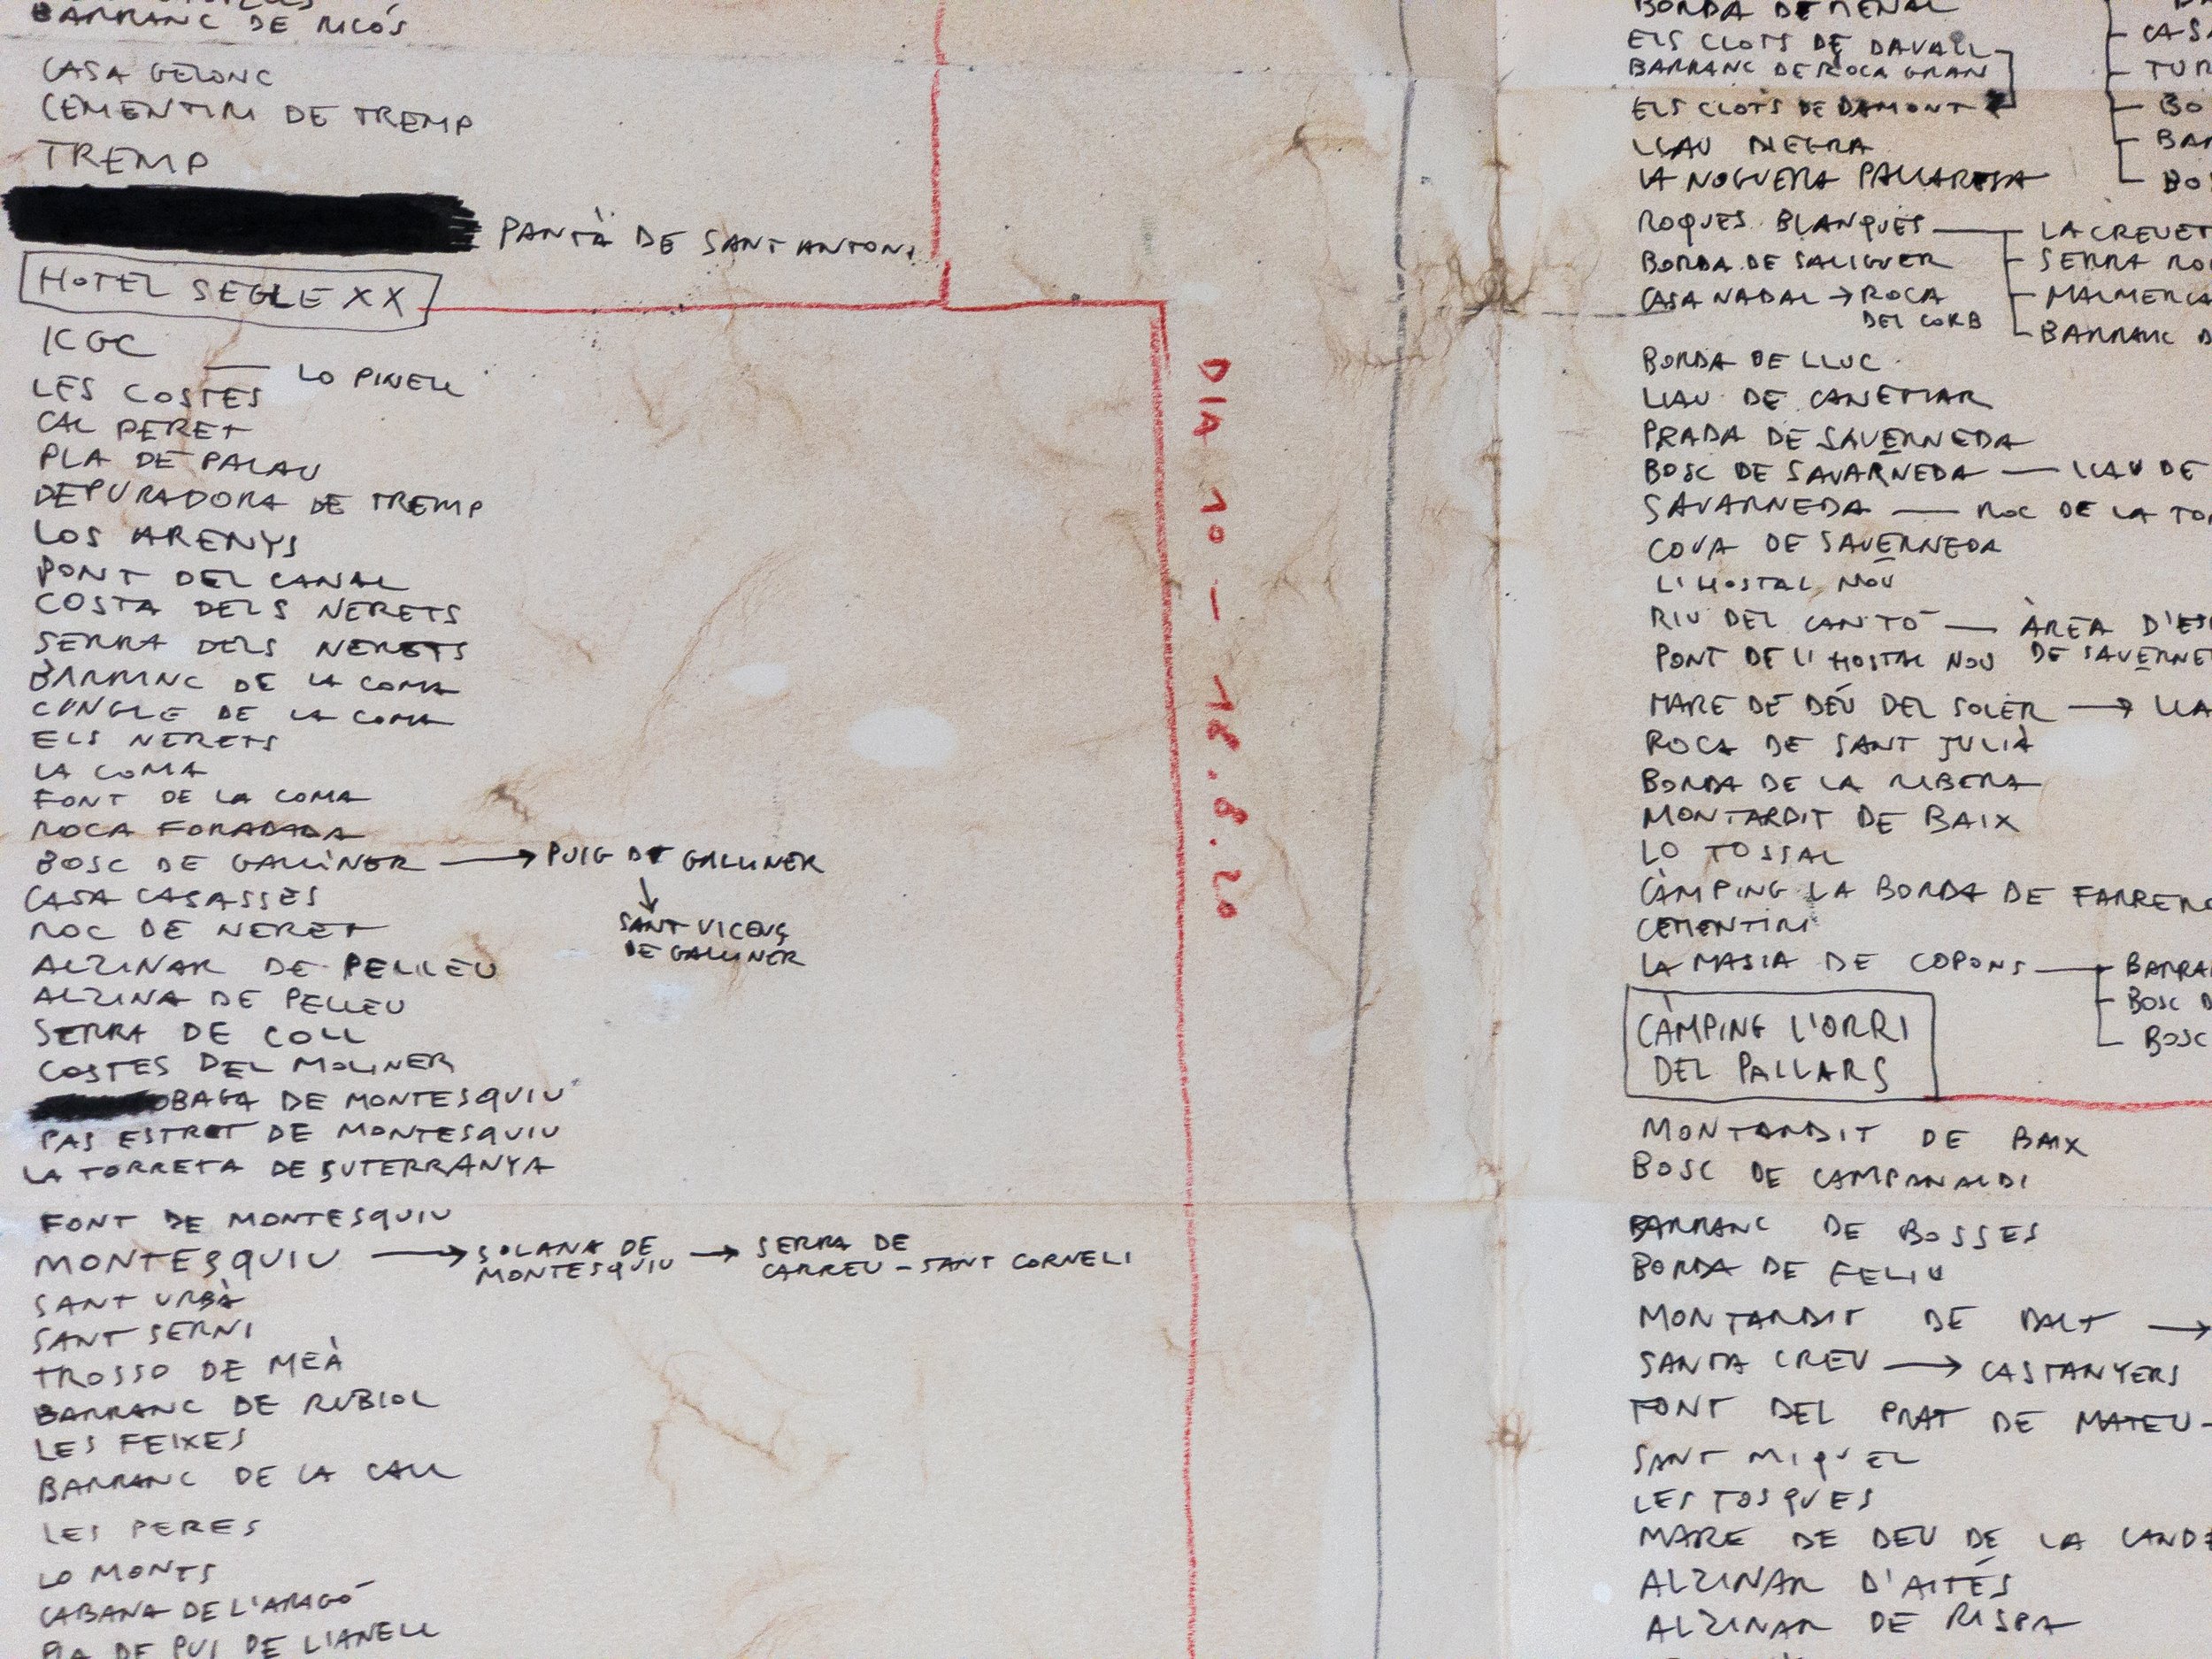 BARRANC DE RICÓS
CASA GERONC
CEMENTIRI DE TREMP
TREMP
PANTÀ DE SANT ANTONI
HOTEL SEGLE XX
ICGC
LO PINELL
LES COSTES
CAL PERET
PLA DE PALAU
DEPURADORA DE TREMP
LOS ARENYS
PONT DEL CANAL
COSTA DELS NERETS
SERRA DELS NERETS
BARRANC DE LA COMA
CINGLE DE LA COMA
ELS NERETS
LA COMA
FONT DE LA COMA
ROCA FORADADA
BOSC DE GALLINER → PUIG DE GALLINER
↓
SANT VICENÇ
DE GALLINER
CASA CASASSES
ROC DE NERET
ALZINAR DE PELLEU
ALZINA DE PELLEU
SERRA DE COLL
COSTES DEL MOLINER
OBAGA DE MONTESQUIU
PAS ESTRET DE MONTESQUIU
LA TORRETA DE SUTERRANYA
FONT DE MONTESQUIU
MONTESQUIU → SOLANA DE MONTESQUIU → SERRA DE CARREU - SANT CORNELI
SANT URBÀ
SANT SERNI
TROSSO DE MEÀ
BARRANC DE RUBIOL
LES FEIXES
BARRANC DE LA CALL
LES PERES
LO MONTS
CABANA DE L'ARAGÓ
PLA DE PUI DE LLANELL
DIA 10 - 16.8.20
BORDA DE MENAL
ELS CLOTS DE DAVALL
BARRANC DE ROCA GRAN
ELS CLOTS DE DAMONT
LLAU NEGRA
LA NOGUERA PALLARESA
CASA
TUR
BO
BAR
BO
ROQUES BLANQUES — LA CREUET
BORDA DE SALIGUER
SERRA RO
CASA NADAL → ROCA
DEL CORB
MALMERCA
BARRANC D
BORDA DE LLUC
LLAU DE CANEMAR
PRADA DE SAVERNEDA
BOSC DE SAVARNEDA — LLAU DE
SAVARNEDA — ROC DE LA TO
COVA DE SAVERNEDA
L'HOSTAL NOU
RIU DEL CANTÓ — ÀREA D'ES
DE SAVERNE
PONT DE L'HOSTAL NOU
MARE DE DÉU DEL SOLER → LLA
ROCA DE SANT JULIÀ
BORDA DE LA RIBERA
MONTARDIT DE BAIX
LO TOSSAL
CÀMPING LA BORDA DE FARRERO
CEMENTIRI
LA MASIA DE COPONS — BARRA
BOSC D
BOSC
CÀMPING L'ORRI
DEL PALLARS
MONTARDIT DE BAIX
BOSC DE CAMPANALDI
BARRANC DE BOSSES
BORDA DE FELIU
MONTARDIT DE DALT →
SANTA CREU → CASTANYERS
FONT DEL PRAT DE MATEU -
SANT MIQUEL
LES TOSQUES
MARE DE DEU DE LA CANDE
ALZINAR D'AITÉS
ALZINAR DE RISPA